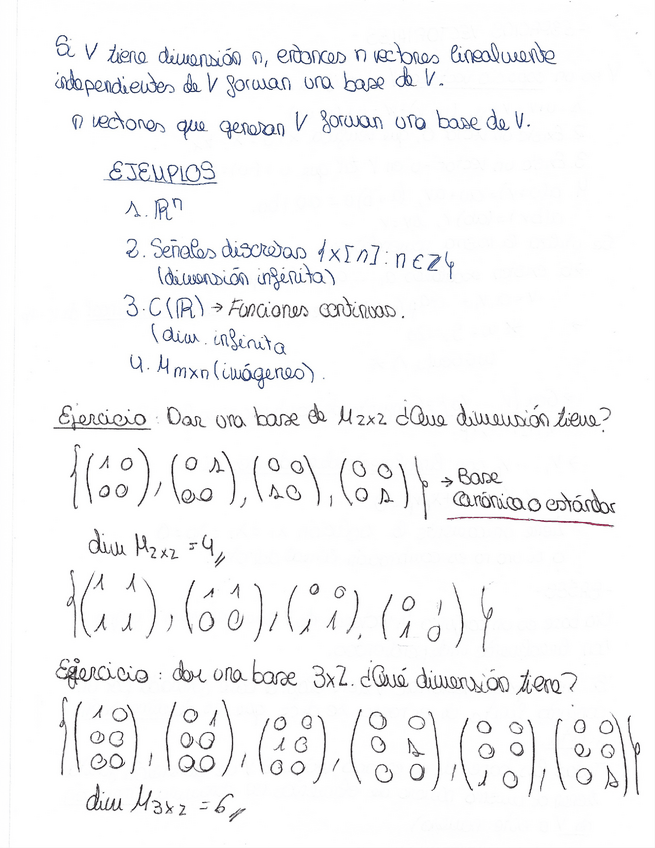 Si V tiene dimensión n, entonces n vectores linealmente
independientes de V forman una base de V.
n vectores que generan V forman una base de V.
EJEMPLOS
1. ℝⁿ
2. Señales discretas {x[n]: n ∈ ℤ}
(dimensión infinita)
3. C(ℝ) → Funciones continuas.
(dim. infinita
4. M m×n (imágenes).
Ejercicio: Dar una base de M 2x2 ¿Que dimensión tiene?
{(1 0; 0 0), (0 1; 0 0), (0 0; 1 0), (0 0; 0 1)} → Base
canónica o estándar
dim M 2x2 = 4,,
{(1 1; 1 1), (1 1; 0 0), (0 0; 1 1), (0 1; 1 0)}
Ejercicio: dar una base 3x2. ¿Qué dimensión tiene?
{(1 0; 0 0; 0 0), (0 1; 0 0; 0 0), (0 0; 1 0; 0 0), (0 0; 0 1; 0 0), (0 0; 0 0; 1 0), (0 0; 0 0; 0 1)}
dim M 3x2 = 6,,